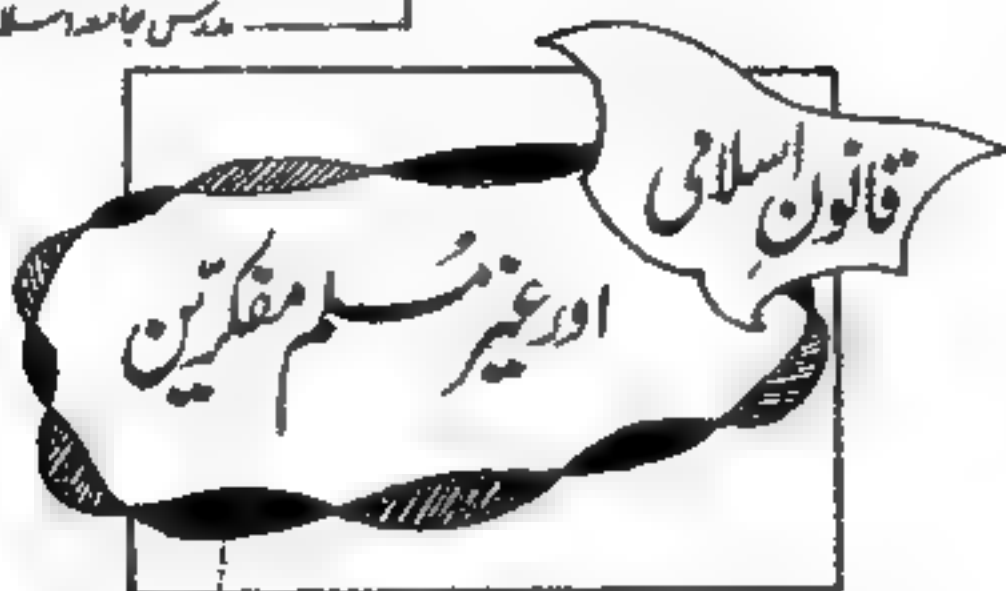 مدرس جامعہ اسلا
قانونِ اسلامی
اور غیر مُسلم مفکرّین